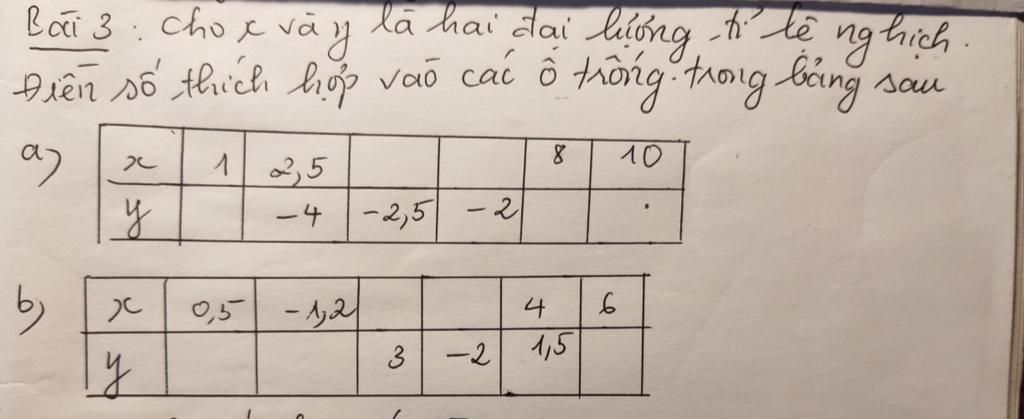 Bài 3: Cho x và y là hai đại lượng tỉ lệ nghịch.
Điền số thích hợp vào các ô trống trong bảng sau
a)
x 1 2,5 8 10
y -4 -2,5 -2
b)
x 0,5 -1,2 4 6
y 3 -2 1,5